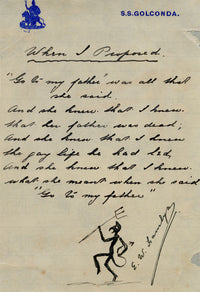 S.S. GOLCONDA.
When I Proposed.
"Go to my father" was all that
she said.
And she knew that I knew
that her father was dead;
And she knew that I knew
the gay life he had led,
And she knew that I knew
what she meant when she said
"Go to my father"
E. W.